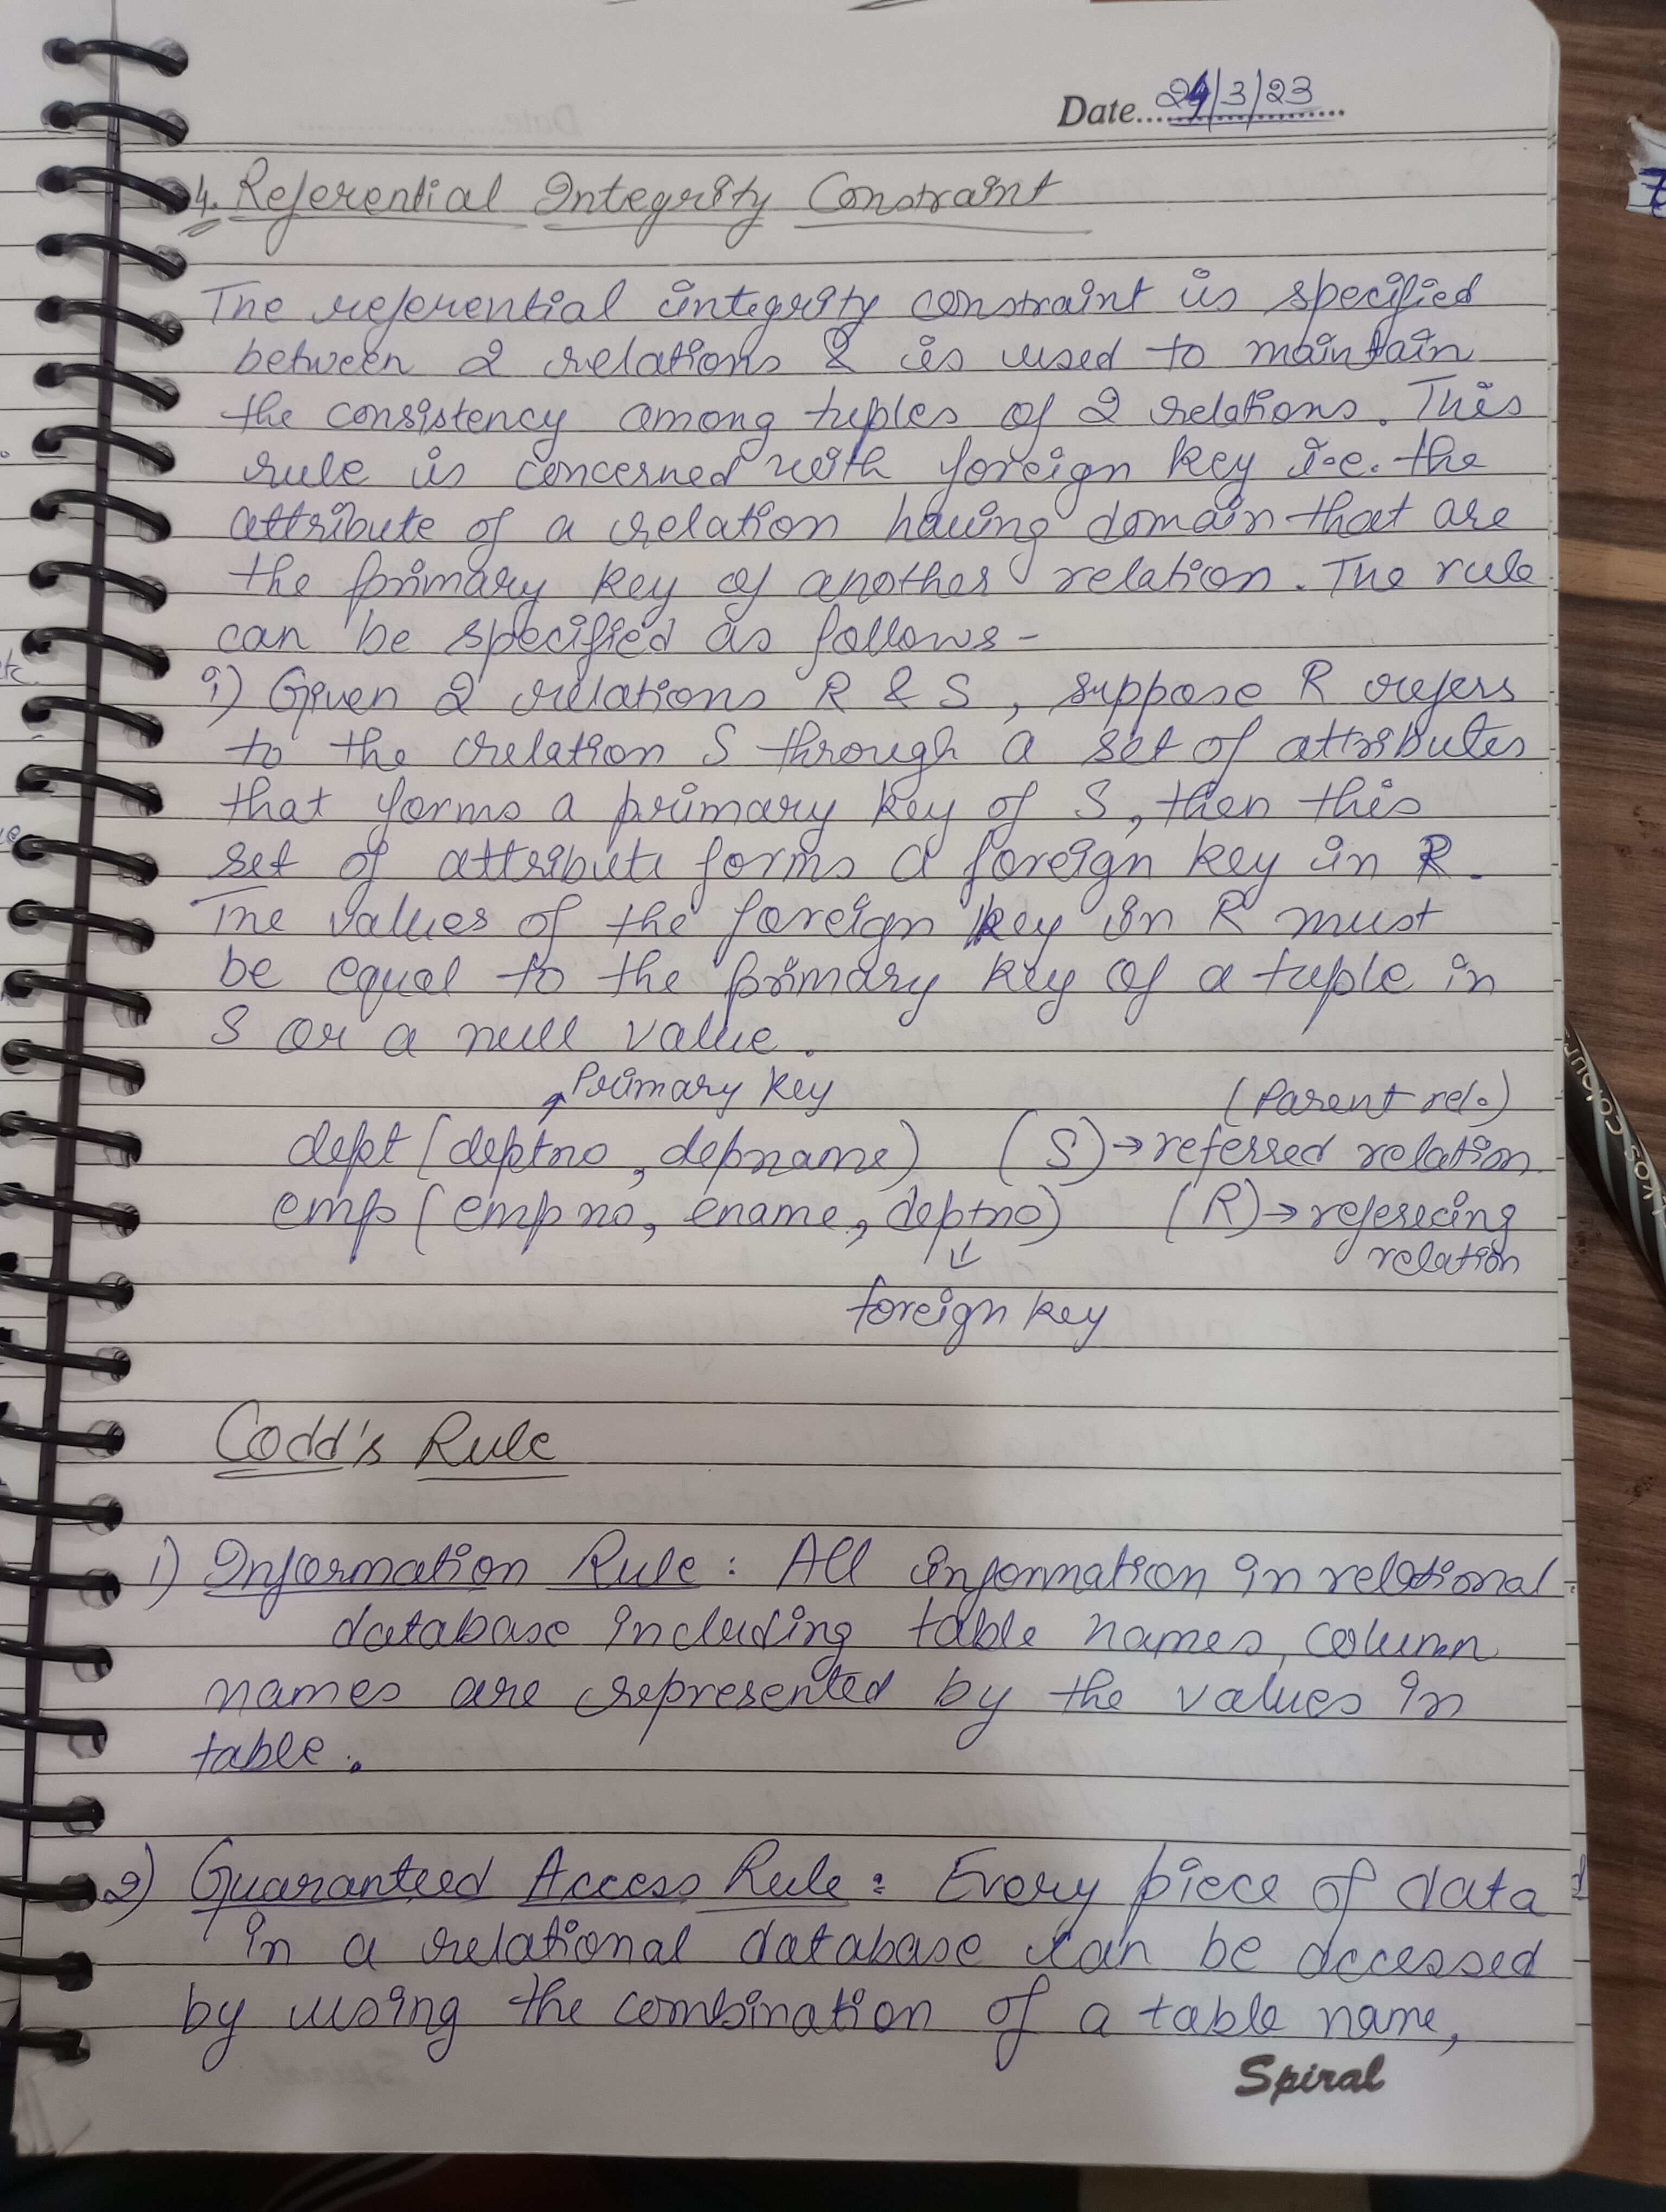 Date..24/3/23
4. Referential Integrity Constraint
The referential integrity constraint is specified
between 2 relations & is used to maintain
the consistency among tuples of 2 relations. This
rule is concerned with foreign key i.e. the
attribute of a relation having domain that are
the primary key of another relation. The rule
can be specified as follows -
i) Given 2 relations R & S, suppose R refers
to the relation S through a set of attributes
that forms a primary key of S, then this
set of attribute forms a foreign key in R.
The values of the foreign key in R must
be equal to the primary key of a tuple in
S or a null value.
Primary key (Parent rel.)
dept (deptno, depname) (S) → referred relation
emp (empno, ename, deptno) (R) → referecing
relation
foreign key
Codd's Rule
1) Information Rule : All information in relational
database including table names, column
names are represented by the values in
table.
2) Guaranteed Access Rule : Every piece of data
in a relational database can be accessed
by using the combination of a table name,
Spiral